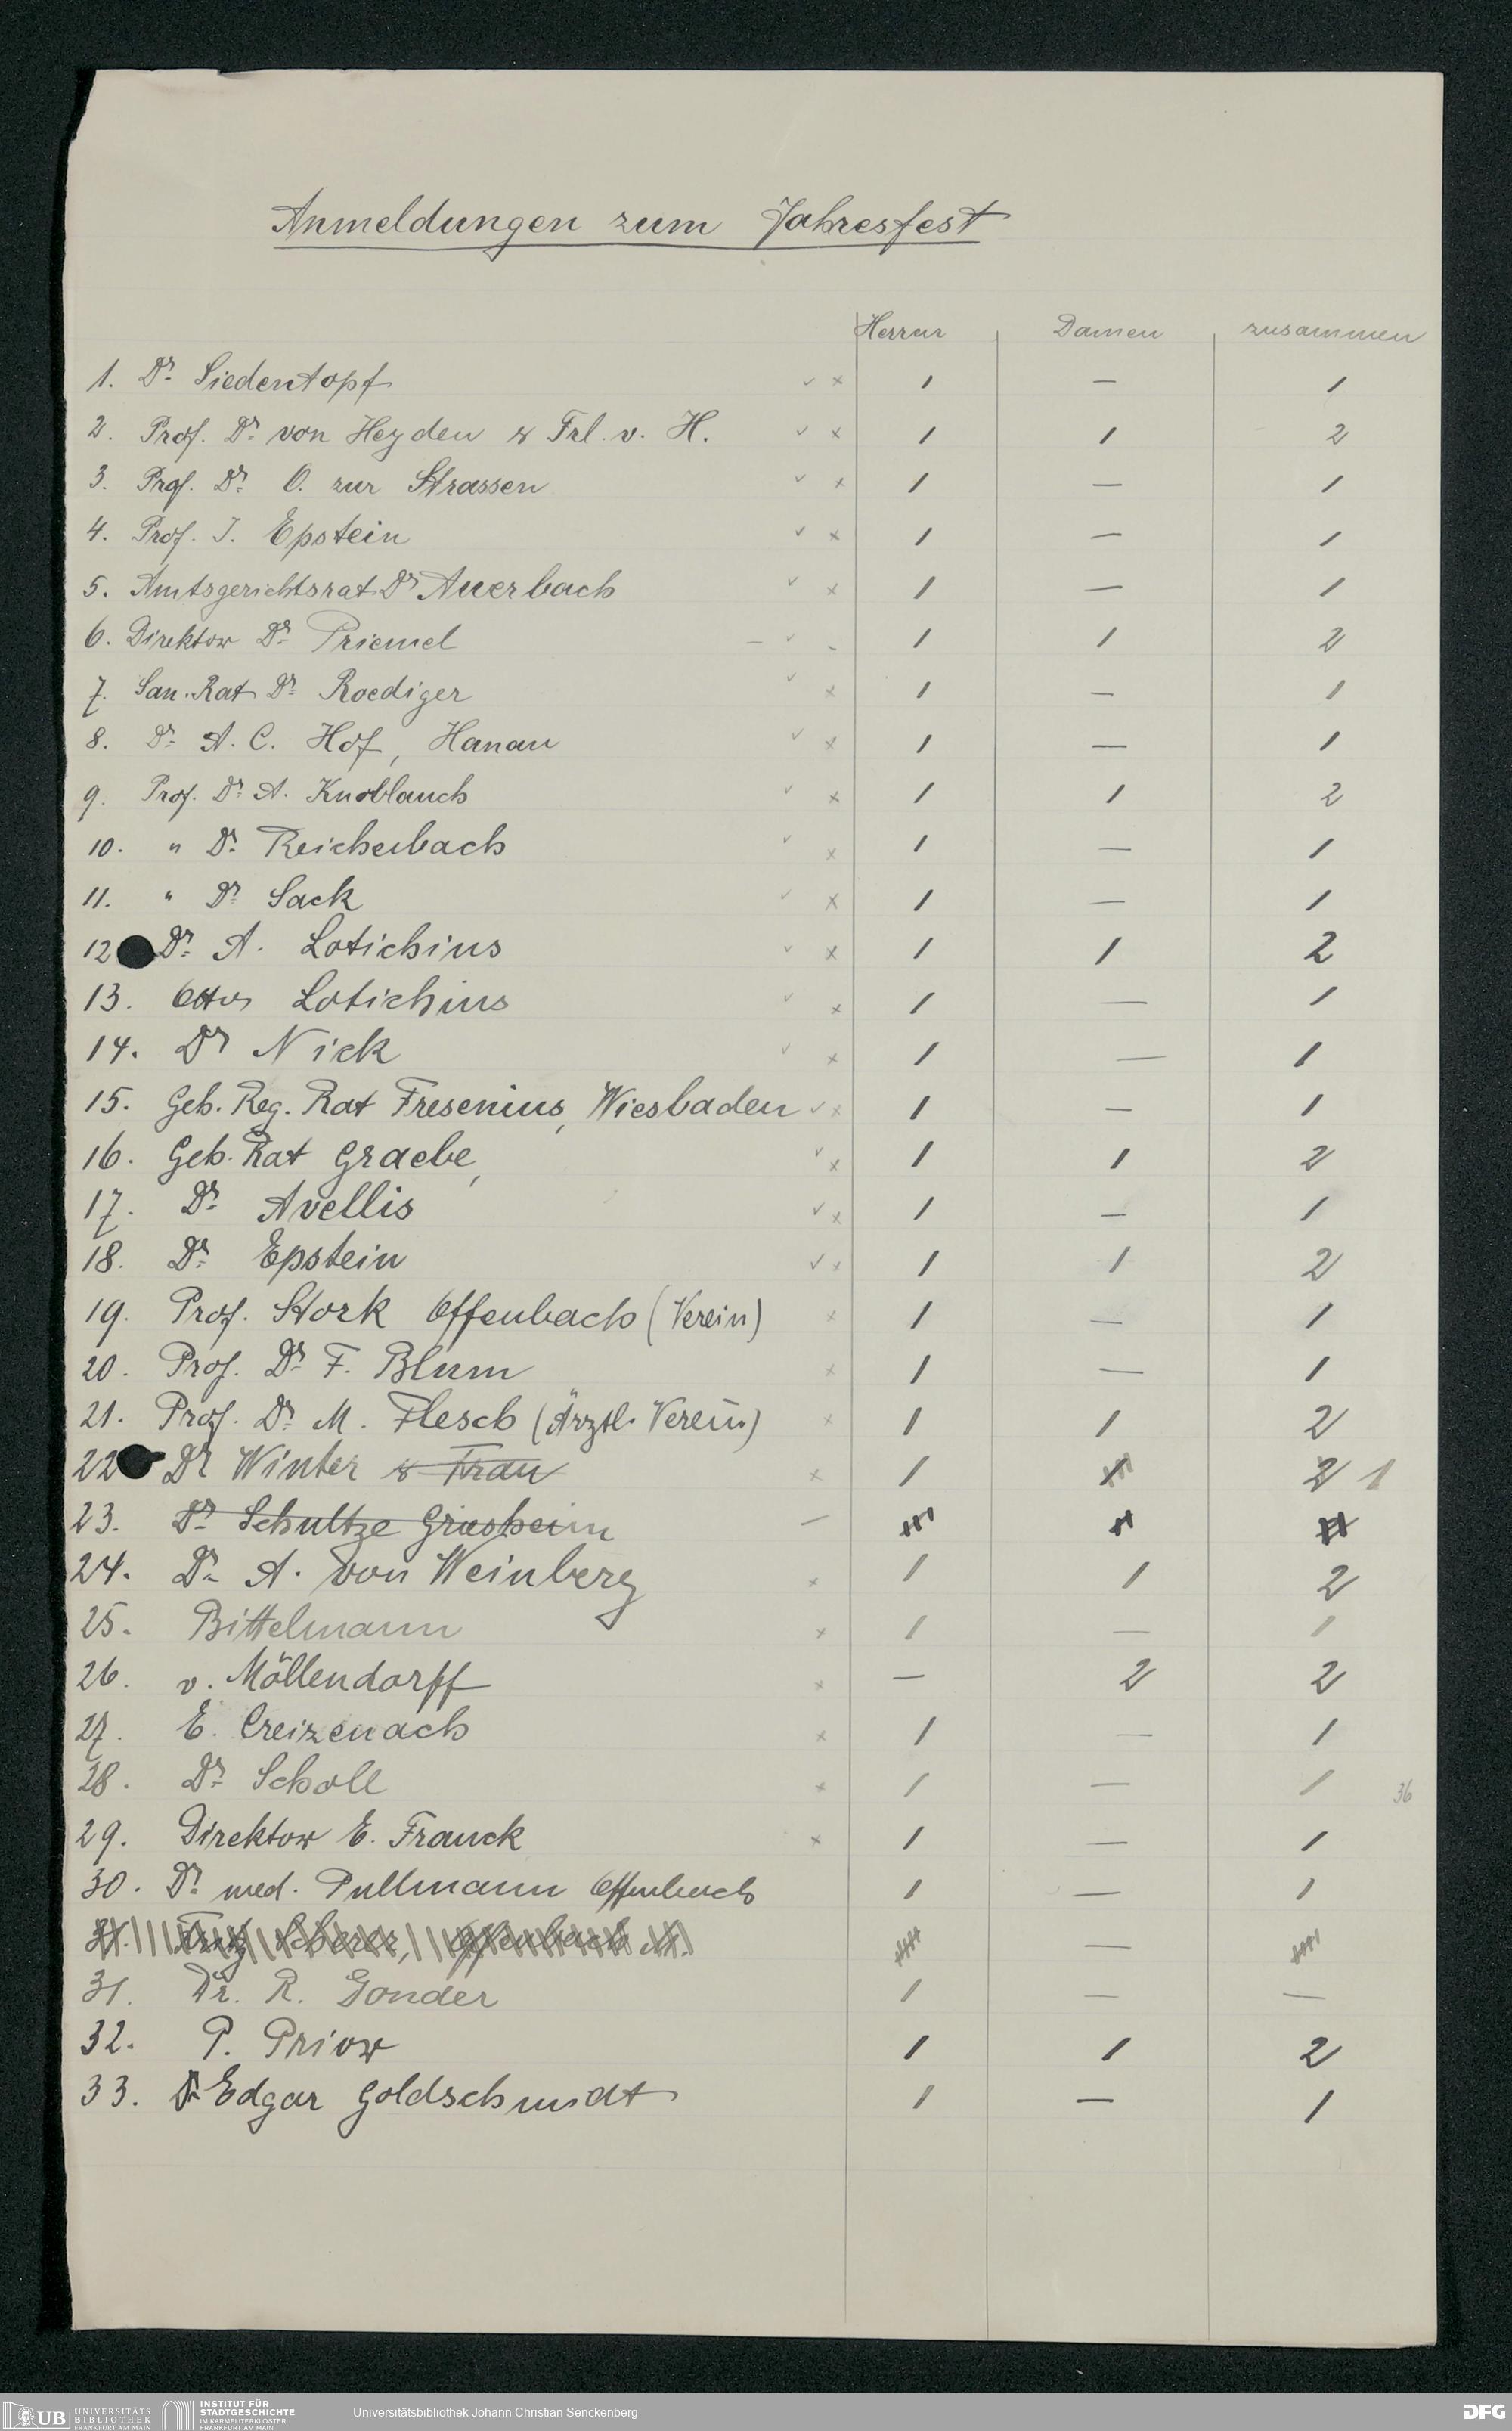 Anmeldungen zum Jahresfest
Herren Damen zusammen
1. Dr. Siedentopf ✓ × 1 — 1
2. Prof. Dr. von Heyden & Frl. v. H. ✓ × 1 1 2
3. Prof. Dr. O. zur Strassen ✓ × 1 — 1
4. Prof. J. Epstein ✓ × 1 — 1
5. Amtsgerichtsrat Dr Auerbach ✓ × 1 — 1
6. Direktor Dr. Priemel — ✓ - 1 1 2
7. San. Rat Dr. Roediger ✓ × 1 — 1
8. Dr. A. C. Hof, Hanau ✓ × 1 — 1
9. Prof. Dr. A. Knoblauch ✓ × 1 1 2
10. " Dr. Reichenbach ✓ × 1 — 1
11. " Dr. Sack ✓ × 1 — 1
12 Dr. A. Lotichius ✓ × 1 1 2
13. Otto Lotichius ✓ × 1 — 1
14. Dr Nick ✓ × 1 — 1
15. Geh. Reg. Rat Fresenius, Wiesbaden ✓ × 1 — 1
16. Geh. Rat Graebe, ✓ × 1 1 2
17. Dr. Avellis ✓ × 1 — 1
18. Dr. Epstein ✓ × 1 1 2
19. Prof. Stork Offenbach (Verein) × 1 — 1
20. Prof. Dr. F. Blum × 1 — 1
21. Prof. Dr. M. Flesch (Ärztl. Verein) × 1 1 2
22 Dr Winter & Frau × 1 1 2 1
23. Dr. Schultze Griesheim —
24. Dr. A. von Weinberg × 1 1 2
25. Bittelmann × 1 — 1
26. v. Möllendorff × — 2 2
27. E. Creizenach × 1 — 1
28. Dr. Scholl × 1 — 1 36
29. Direktor E. Franck × 1 — 1
30. Dr. med. Pullmann Offenbach 1 — 1
31. Fritz Scherer, Offenbach M. —
31. Dr. R. Gonder 1 — —
32. P. Prior 1 1 2
33. Dr Edgar Goldschmidt 1 — 1
UB UNIVERSITÄTS
BIBLIOTHEK
FRANKFURT AM MAIN
INSTITUT FÜR
STADTGESCHICHTE
IM KARMELITERKLOSTER
FRANKFURT AM MAIN
Universitätsbibliothek Johann Christian Senckenberg
DFG